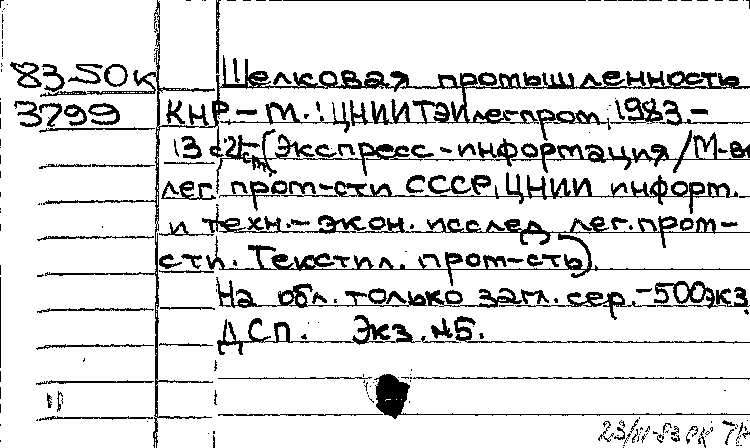 83-50к Шелковая промышленность
3799 КНР.- М.: ЦНИИТЭИлегпром, 1983.-
13 с. (Экспресс-информация/М-во
лег. пром-сти СССР, ЦНИИ информ.
и техн.-экон. исслед. лег. пром-
сти. Текстил. пром-сть).
На обл. только загл. сер.-500экз
ДСП. Экз. №5.